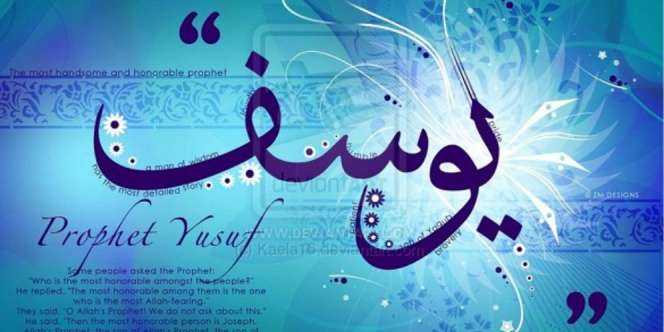 “
The most handsome and honorable prophet
يوسف
a man of wisdom
has the most detailed story
humble
pride
bravery
deviantART
WWW.DEVIANTART.COM
(c) Kaela16.deviantart.com
© EM DESIGNS
Prophet Yusuf
Some people asked the Prophet:
"Who is the most honorable amongst the people?"
He replied, "The most honorable among them is the one
who is the most Allah-fearing."
They said, "O Allah's Prophet! We do not ask about this."
He said, "Then the most honorable person is Joseph,
Allah's Prophet, the son of Allah's Prophet, the son of
”